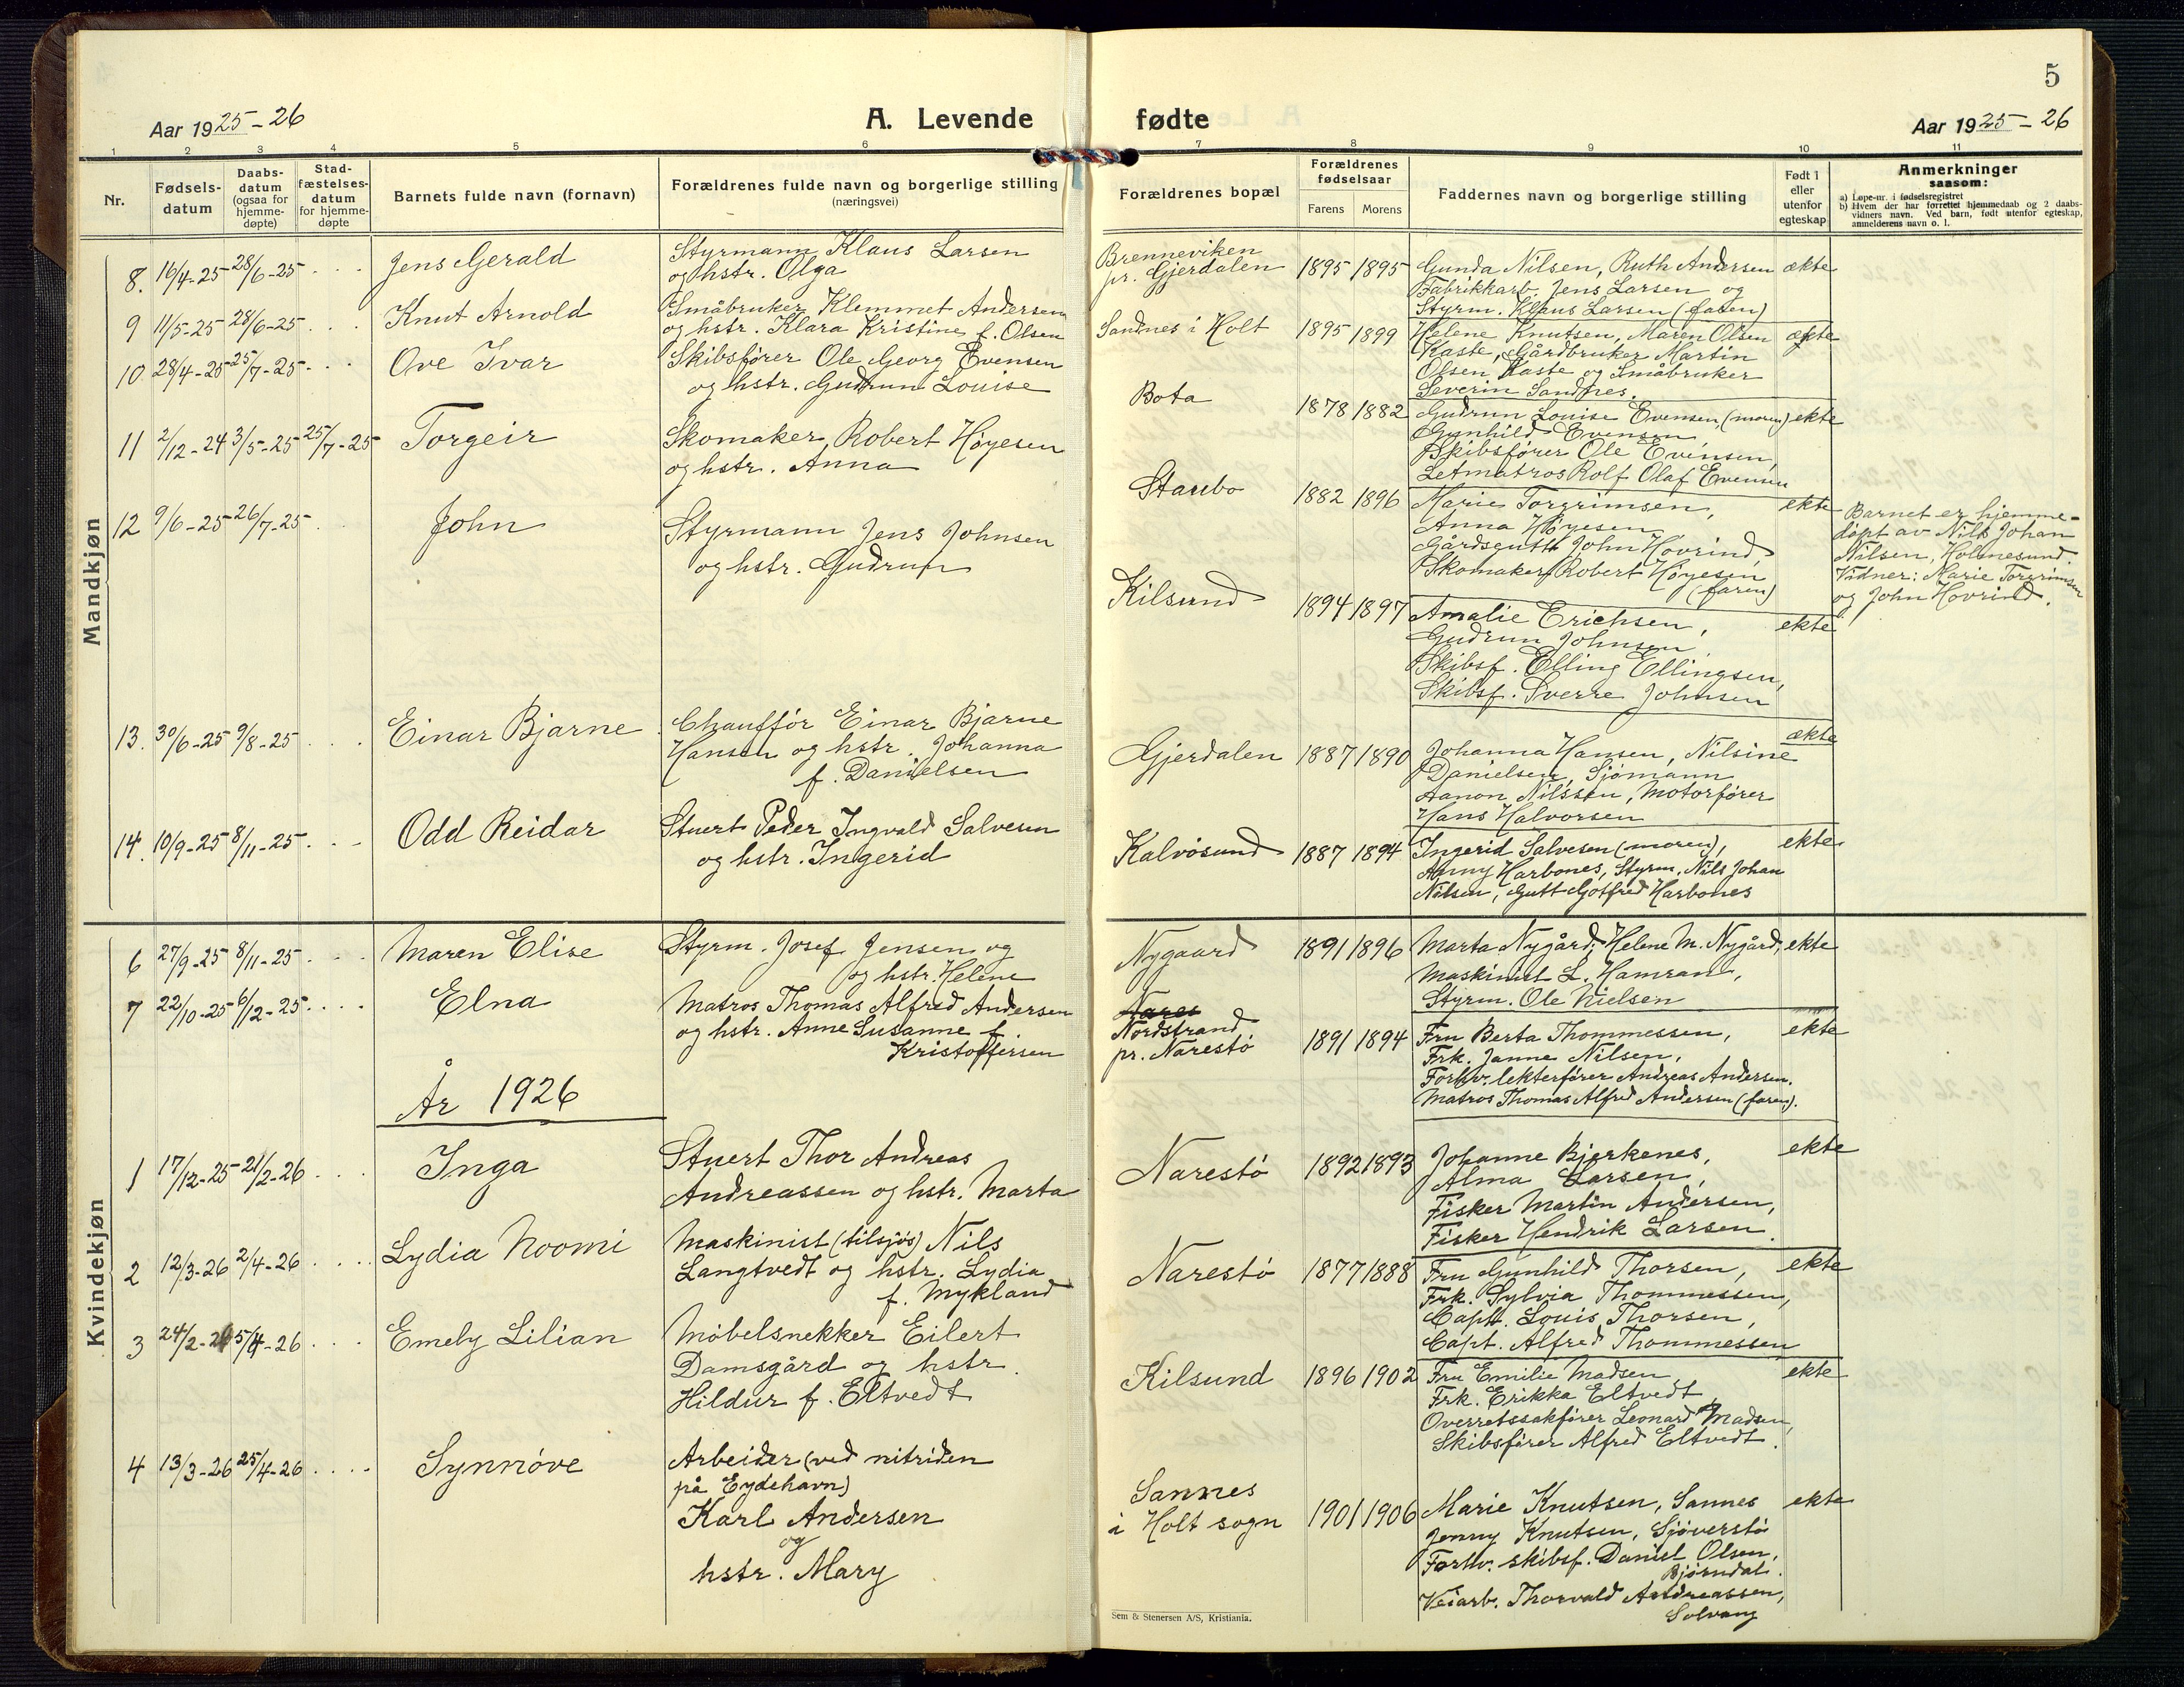 5
Aar 1925-26
A. Levende
fødte
Aar 1925-26
1 2 3 4 5 6
7 8 9 10 11
Nr.
Fødsels-
datum
Daabs-
datum
(ogsaa for
hjemme-
døpte)
Stad-
fæstelses-
datum
for hjemme-
døpte
Barnets fulde navn (fornavn)
Forældrenes fulde navn og borgerlige stilling
(næringsvei)
Forældrenes bopæl
Forældrenes
fødselsaar
Farens Morens
Faddernes navn og borgerlige stilling
Født i
eller
utenfor
egteskap
Anmerkninger
saasom:
a) Løpe-nr. i fødselsregistret
b) Hvem der har forrettet hjemmedaab og 2 daabs-
vidners navn. Ved barn, født utenfor egteskap,
anmelderens navn o. l.
Mandkjøn
8. 16/4-25 28/6-25 Jens Gerald
Styrmann Klaus Larsen
og hstr. Olga
Brenneviken
pr. Gjerdalen 1895 1895
Gunda Nilsen, Ruth Andersen ækte
Fabrikkarb. Jens Larsen og
Styrm. Klaus Larsen (faren)
9 11/5-25 28/6-25 Knut Arnold
Småbruker Klemmet Andersen
og hstr. Klara Kristine f. Olsen
Sandnes i Holt 1895 1899
Helene Knutsen, Maren Olsen ækte
Kaste, Gårdbruker Martin
Olsen Kaste og Småbruker
Severin Sandnes.
10 28/4-25 25/7-25 Ove Ivar
Skibsfører Ole Georg Evensen
og hstr. Gudrun Louise
Bota 1878 1882
Gudrun Louise Evensen (moren) ekte
Gunhild Evensen,
Skibsfører Ole Evensen,
Letmatros Rolf Olaf Evensen
11 2/12-24 3/5-25 25/7-25 Torgeir
Skomaker Robert Høyesen
og hstr. Anna
Staubo 1882 1896
Marie Torgrimsen, ekte
Anna Høyesen
Gårdsgutt John Hovrind,
Skomaker Robert Høyesen
(faren)
Barnet er hjemme-
døpt av Nils Johan
Nilsen, Holmesund.
Vidner: Marie Torgrimsen
og John Hovrind.
12 9/6-25 26/7-25 John
Styrmann Jens Johnsen
og hstr. Gudrun
Kilsund 1894 1897
Amalie Erichsen, ekte
Gudrun Johnsen,
Skibsf. Elling Ellingsen,
Skibsf. Sverre Johnsen
13. 30/6-25 9/8-25 Einar Bjarne
Chauffør Einar Bjarne
Hansen og hstr. Johanna
f. Danielsen
Gjerdalen 1887 1890
ækte
Johanna Hansen, Nilsine
Danielsen, Sjømann
Aanon Nilssen, Motorfører
Hans Halvorsen
14. 10/9-25 8/11-25 Odd Reidar
Stuert Peder Ingvald Salvesen
og hstr. Ingerid
Kalvøsund 1887 1894
Ingerid Salvesen (moren), ekte
Anny Harbones, Styrm. Nils Johan
Nilsen, Gutt Gotfred Harbones
Kvindekjøn
6 27/9-25 8/11-25 Maren Elise
Styrm. Josef Jensen og
og hstr. Helene
Nygaard 1891 1896
Marta Nygård, Helene M. Nygård, ekte
Maskinist L. Hamran,
Styrm. Ole Nielsen
7 22/10-25 6/12-25 Elna
Matros Thomas Alfred Andersen
og hstr. Anne Susanne f.
Kristoffersen
Nares
Nordstrand
pr. Narestø 1891 1894
Fru Berta Thommessen, ekte
Frk. Janne Nilsen,
Forhv. lekterfører Andreas Andersen.
Matros Thomas Alfred Andersen (faren).
År 1926
1 17/12-25 21/2-26 Inga
Stuert Thor Andreas
Andreassen og hstr. Marta
Narestø 1892 1893
Johanne Bjerkenes, ekte
Alma Larsen,
Fisker Martin Andersen,
Fisker Hendrik Larsen.
2 12/3-26 2/4-26 Lydia Noomi
Maskinist (tilsjøs) Nils
Langtvedt og hstr. Lydia
f. Mykland
Narestø 1877 1888
Fru Gunhild Thorsen, ekte
Frk. Sylvia Thommessen,
Capt. Louis Thorsen,
Capt. Alfred Thommessen
3 24/2-26 5/4-26 Emely Lilian
Møbelsnekker Eilert
Damsgård og hstr.
Hildur f. Eltvedt
Kilsund 1896 1902
Fru Emilie Madsen, ekte
Frk. Erikka Eltvedt,
Overretssakfører Leonard Madsen,
Skibsfører Alfred Eltvedt.
4 13/3-26 25/4-26 Synnøve
Arbeider (ved nitriden
på Eydehavn)
Karl Andersen
og
hstr. Mary
Sannes
i Holt sogn 1901 1906
Marie Knutsen, Sannes ekte
Jenny Knutsen, Sjøverstø
Forhv. skibsf. Daniel Olsen,
Bjørndal.
Veiarb. Thorvald Andreassen,
Solvang
Sem & Stenersen A/S, Kristiania.